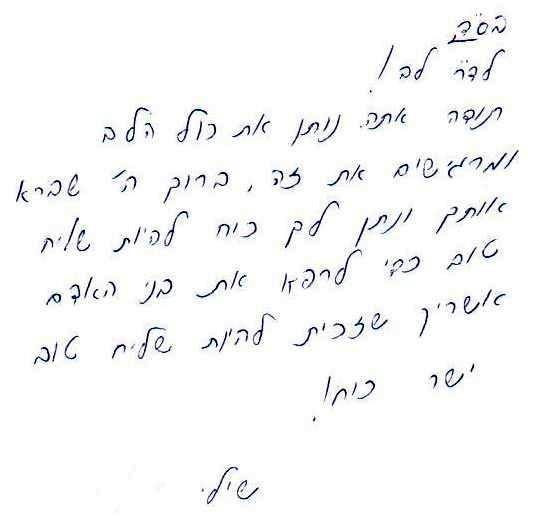 בס"ד
לדר' לב!
תודה אתה נותן את כול הלב
ומרגישים את זה, ברוך ה' שברא
אותך ונתן לך כוח להיות שליח
טוב כדי לרפא את בני האדם
אשריך שזכית להיות שליח טוב
ישר כוח!
שילי